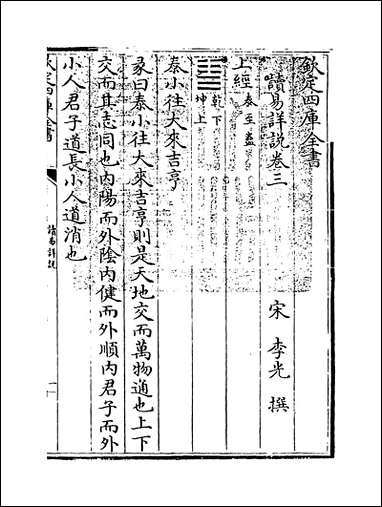 欽定四庫全書
讀易詳說卷三
宋 李光 撰
上經 泰至蠱
乾下
坤上
泰小往大來吉亨
彖曰泰小往大來吉亨則是天地交而萬物通也上下
交而其志同也内陽而外陰内健而外順内君子而外
小人君子道長小人道消也
欽定四庫全書
讀易詳說
一